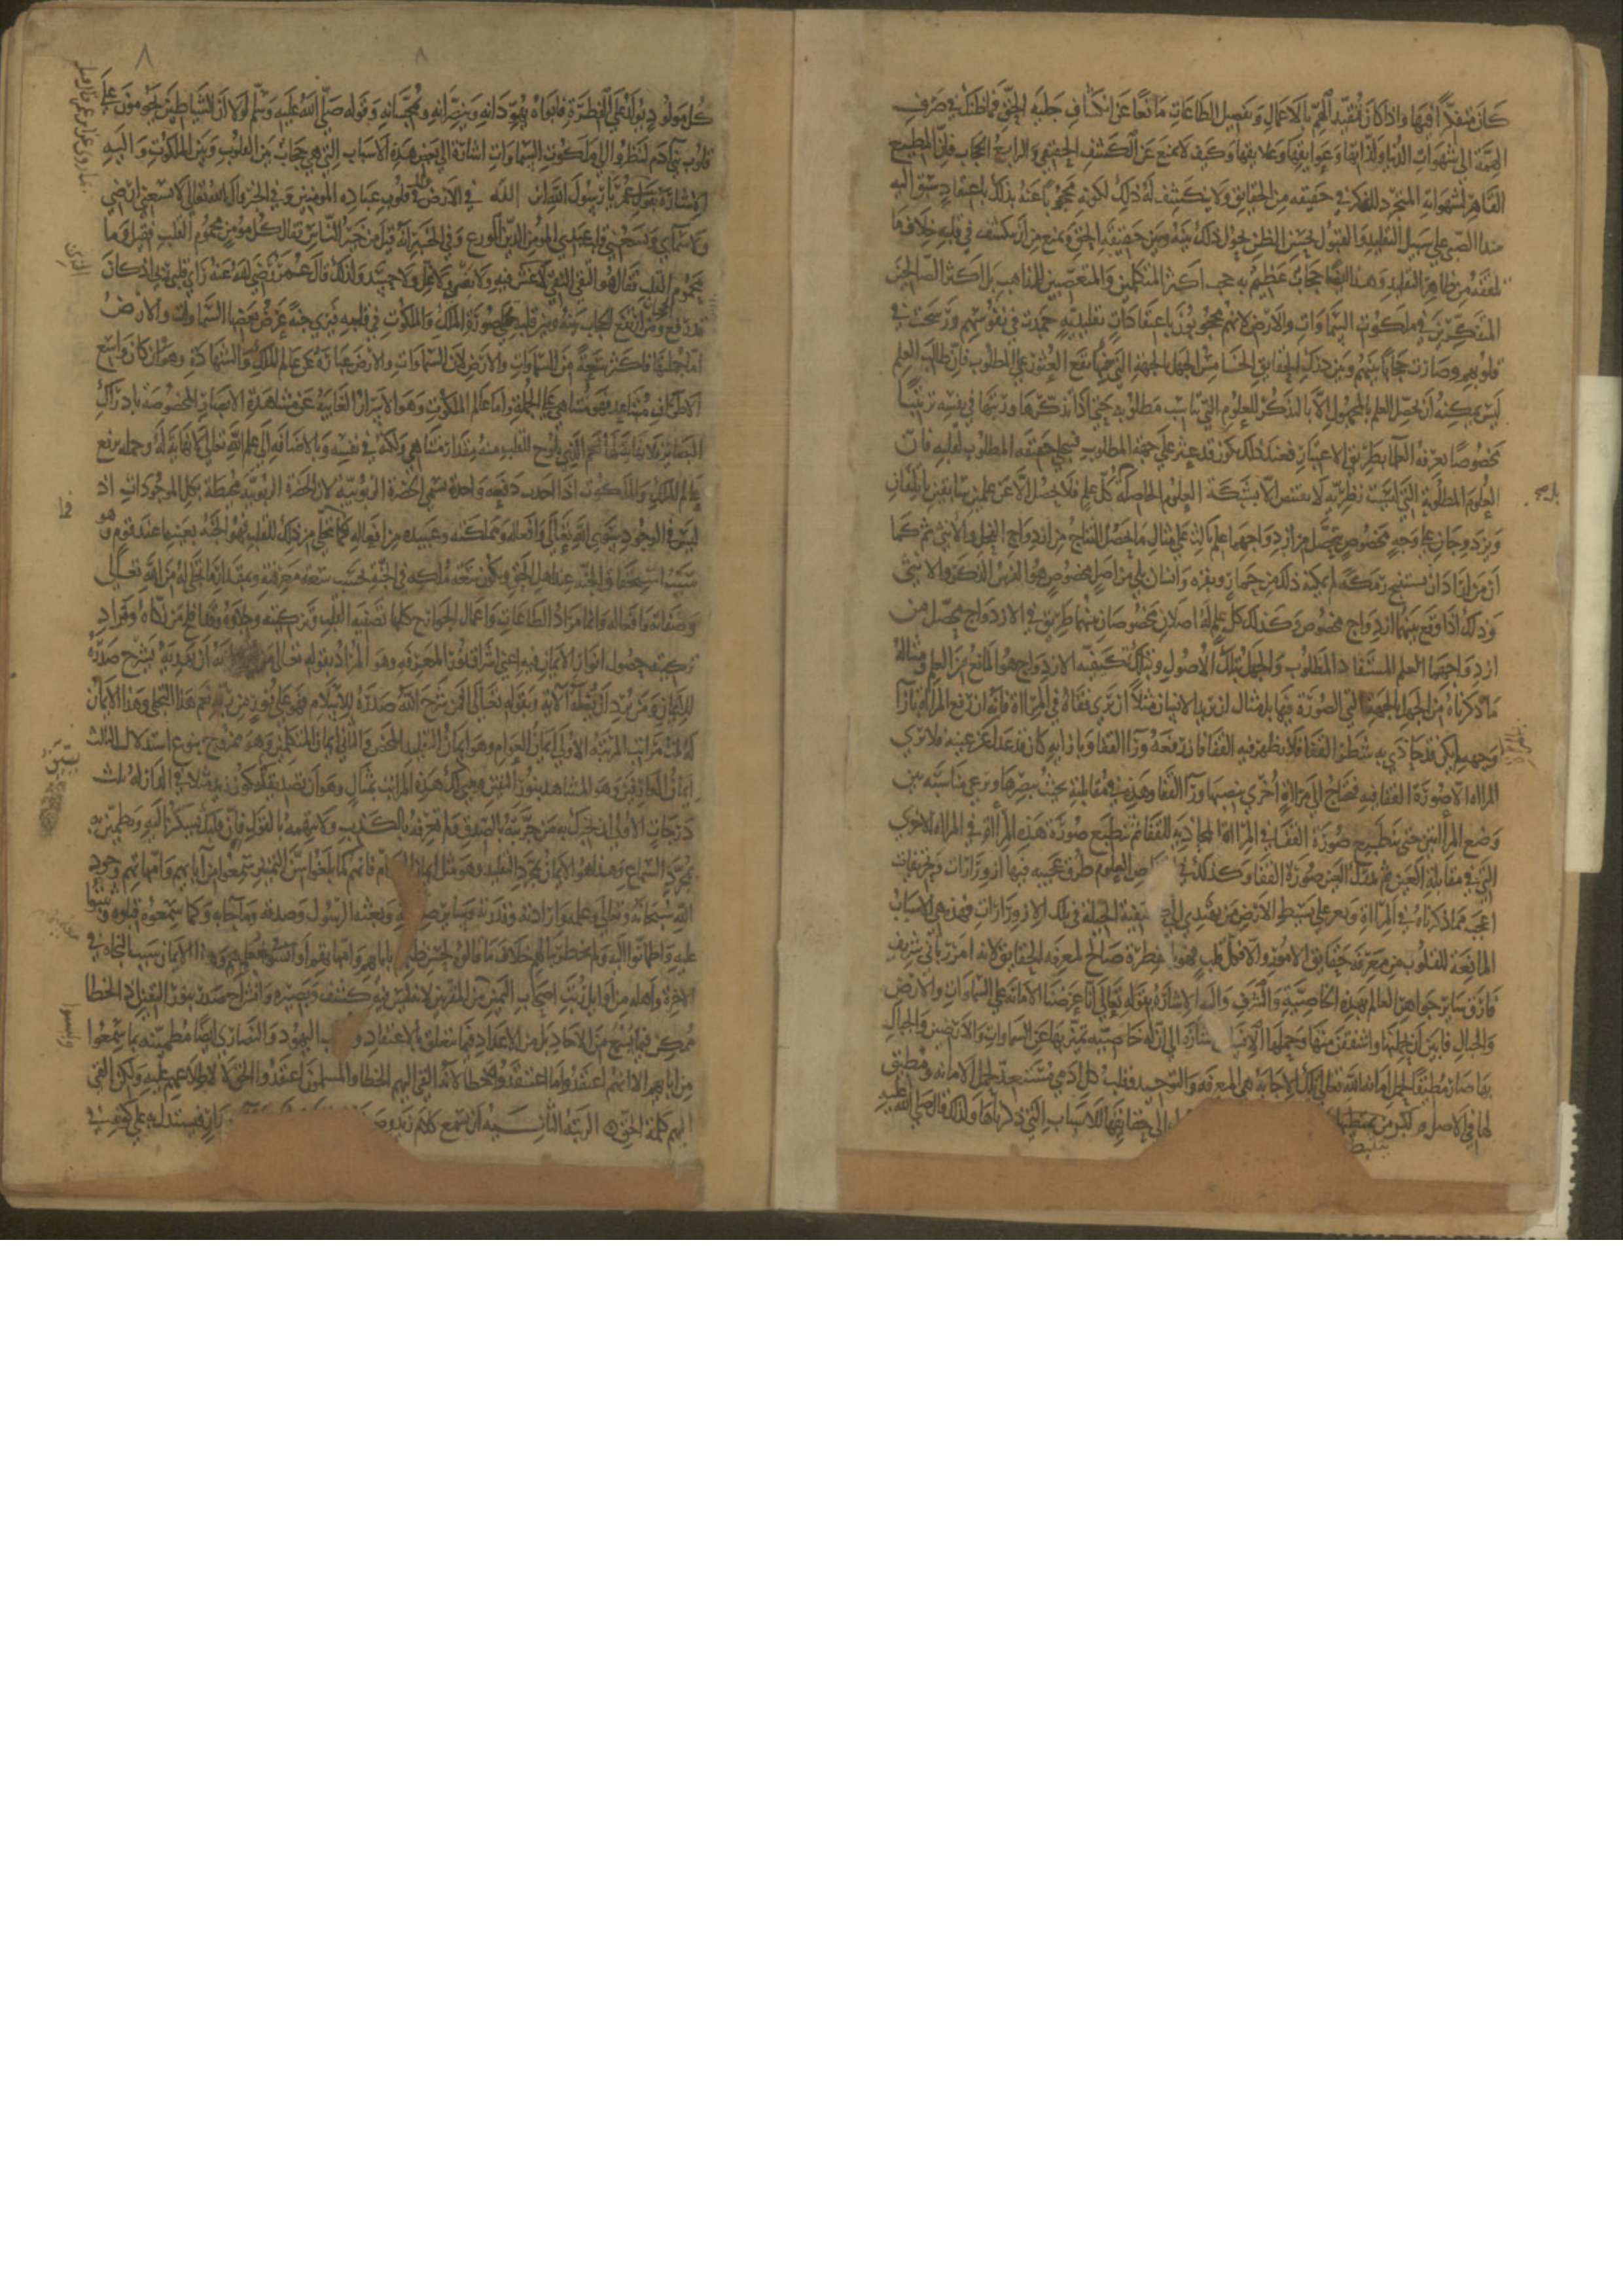 كان متفكرا فيها واذا كان تقيد الهم بالاعمال وتفصيل الطاعات مانعا عن انكشاف جلية الحق فما ظنك في صرف
الهمة الى شهوات الدنيا ولذاتها وعلايقها وكيف لا يمنع عن الكشف الحقيقي والرابع الحجاب فان المطيع
القاهر لشهواته المتجرد للفكر في حقيقه من الحقايق ولا ينكشف له ذلك لكونه محجوبا عنه بذلك باعتقاد سبق اليه
منذ الصبى على سبيل التقليد والقبول بحسن الظن يحول ذلك بينه وبين حقيقة الحق ويمنع من ان ينكشف في قلبه خلاف ما
تلقفه من ظاهر التقليد وهذا ايضا حجاب عظيم به حجب اكثر المتكلمين والمتعصبين للمذاهب بل اكثر الصالحين
المتفكرين في ملكوت السماوات والارض لانهم محجوبون باعتقادات تقليديه جمدت في نفوسهم ورسخت في
قلوبهم وصارت حجابا بينهم وبين درك الحقايق الخامس الجهل بالجهة التي منها يقع العثور على المطلوب فان طالب العلم
ليس يمكنه ان يحصل العلم بالمجهول الا بالتذكر للعلوم التي تناسب مطلوبه حتى اذا تذكرها ورتبها في نفسه ترتيبا
مخصوصا يعرفه العلما بطريق الاعتبار فعند ذلك يكون قد عثر على جهة المطلوب فينجلي حقيقة المطلوب لقلبه فان
العلوم المطلوبة التي ليست فطريه لا تقتنص الا بشبكة العلوم الحاصلة كل علم فلا يحصل الا عن علمين سابقين ياتلفان
ويزدوجان على وجه مخصوص فيحصل من ازدواجهما علم ثالث على مثال ما يحصل النتاج من ازدواج الفحل والانثى ثم كما
ان من اراد ان يستنتج رمكه لم يمكنه ذلك من حمار وبقره وانسان بل من اصل مخصوص هو الفرس الذكر والانثى
وذلك اذا وقع بينهما ازدواج مخصوص وكذلك كل علم له اصلان مخصوصان بينهما طريق في الازدواج يحصل من
ازدواجهما العلم المستفاد المطلوب والجهل بتلك الاصول وبتلك كيفية الازدواج هو المانع من العلم ومثاله
ما ذكرناه من الجهل بالجهة التي الصورة فيها بل مثال ان يريد الانسان مثلا ان يرى قفاه في المرااة فانه ان رفع المرااة بازا
وجهه لم يكن قد حاذى به شطر القفا فلا يظهر فيه القفا فان رفعه ورا القفا وبازايه كان قد عدل عن عينه فلا يرى
المرااه ولا صورة القفا فيه فيحتاج الى مرااة اخرى ينصبها ورا القفا وهذه في مقابلتها بحيث يبصرها ويرعى مناسبه بين
وضع المرااتين حتى تنطبع صورة القفا في المرااة المحاذيه للقفا ثم تنطبع صورة هذه المرااة في المرااه الاخرى
التي في مقابلة العين ثم تدرك العين صورة القفا وكذلك في العلوم طرق عجيبه فيها ازورارات وتحريفات
اعجب مما ذكرناه في المرااة ويعز على بسيط الارض من يهتدي الى كيفية الحيلة في تلك الازورارات فهذه هي الاسباب
المانعة للقلوب من معرفة حقايق الامور والا فكل قلب فهو بالفطرة صالح لمعرفة الحقايق لانه امر رباني شريف
فارق ساير جواهر العالم بهذه الخاصية والشرف واليه الاشارة بقوله تعالى انا عرضنا الامانة على السماوات والارض
والجبال فابين ان يحملنها واشفقن منها وحملها الانسان اشارة الى ان له خاصيه تميز بها عن السماوات والارضين والجبال
بها صار مطيقا لحمل امانة الله تعالى وتلك الامانة هي المعرفة والتوحيد وقلب كل ادمي مستعد لحمل الامانه ومطيق
لها في الاصل ولكن يثبطها الى حقايقها للاسباب التي ذكرناها ولذلك قال صلى الله عليه
كل مولود يولد على الفطرة فابواه يهودانه وينصرانه ويمجسانه وقوله صلى الله عليه وسلم لولا ان الشياطين يحومون على
قلوب بني ادم لنظروا الى ملكوت السماوات اشارة الى بعض هذه الاسباب التي هي حجاب بين القلوب وبين الملكوت واليه
الاشارة بقول ابن عمر يا رسول الله اين الله في الارض قال في قلوب عباده المومنين وفي الخبر قال الله تعالى لا تسعني ارضي
ولا سماي ويسعني قلب عبدي المومن اللين الورع وفي الخبر انه قيل من خير الناس فقال كل مؤمن مخموم القلب فقيل وما
مخموم القلب فقال هو التقي النقي لا غش فيه ولا بغي ولا غل ولا حسد ولذلك قال عمر رضي الله عنه راى قلبي ربي اذ كان
قد رفع ومن ارتفع الحجاب بينه وبين قلبه تجلى صورة الملك والملكوت في قلبه فيرى جنة عرض بعضها السماوات والارض
اما جملتها فاكثر سعة من السماوات والارض لان السماوات والارض عبارة عن عالم الملك والشهادة وهو ان كان واسع
الاطراف متباعد فهو متناهي على الجملة واما عالم الملكوت وهو الاسرار الغايبة عن مشاهدة الابصار المخصوصة بادراك
البصاير فلا نهاية لها نعم الذي يلوح للقلب منه مقدار متناهي ولكنه في نفسه وبالاضافه الى علم الله تعالى لا نهاية له وجملة
عالم الملك والملكوت اذا اخذت دفعه واحدة تسمى الحضرة الربوبيه لان الحضرة الربوبية محيطة بكل الموجودات اذ
ليس في الوجود سوى الله تعالى وافعاله ومملكته وعبيده من افعاله فما يتجلى من ذلك للقلب فهو الجنة بعينها عند قوم وهو
سبب استحقاق الجنة عند اهل الحق ويكون سعة ملكه في الجنة بحسب سعة معرفته وبمقدار ما تجلى له من الله تعالى
وصفاته وافعاله وانما مراد الطاعات واعمال الجوارح كلها تصفية القلب وتزكيته وجلاؤه وقد افلح من زكاه ومراد
تزكيته حصول انوار الايمان فيه اعني اشراق نور المعرفه وهو المراد بقوله تعالى فمن يرد الله ان يهديه يشرح صدره
للاسلام ومن يرد ان يضله الآية وبقوله تعالى افمن شرح الله صدره للاسلام فهو على نور من ربه نعم هذا التجلي وهذا الايمان
له ثلث مراتب المرتبة الاولى ايمان العوام وهو ايمان التقليد المحض والثاني ايمان المتكلمين وهو ممزوج بنوع استدلال الثالث
ايمان العارفين وهو المشاهد بنور اليقين ونبين لك هذه المراتب بمثال وهو ان تصديقك بكون زيد مثلا في الدار له ثلث
درجات الاولى ان يخبرك به من جربته بالصدق ولم تعرفه بالكذب ولا تتهمه بالقول فان قلبك يسكن اليه ويطمئن به
بمجرد السماع وهذا هو الايمان بمجرد التقليد وهو مثل ايمان العوام فانهم كما بلغوا سن التمييز سمعوا من آبايهم وامهاتهم وجود
الله سبحانه وتعالى وعلمه وارادته وقدرته وساير صفاته وبعثه الرسول وصدقه وما جاء به وكما سمعوه قبلوه وثبتوا
عليه واطمانوا اليه ولم يخطر ببالهم خلاف ما قالوا لحسن ظنهم بابايهم وامهاتهم وهذا الايمان سبب النجاه في
الاخرة واهله من اوايل رتب اصحاب اليمين من المقربين لانه ليس فيه كشف وبصيره وانشراح صدر بنور اليقين اذ الخطا
ممكن فيما يسمع من الاحاد بل من الاعداد فيما يتعلق بالاعتقاد وقلوب اليهود والنصارى ايضا مطمئنه بما سمعوا
من ابايهم الا انهم اعتقدوا ما اعتقدوا خطا لانه القي اليهم الخطا والمسلمون اعتقدوا الحق لا لاطلاعهم عليه ولكن القي
اليهم كلمة الحق الرتبة الثانيه ان تسمع كلام زيد فيستدل به على كونه في